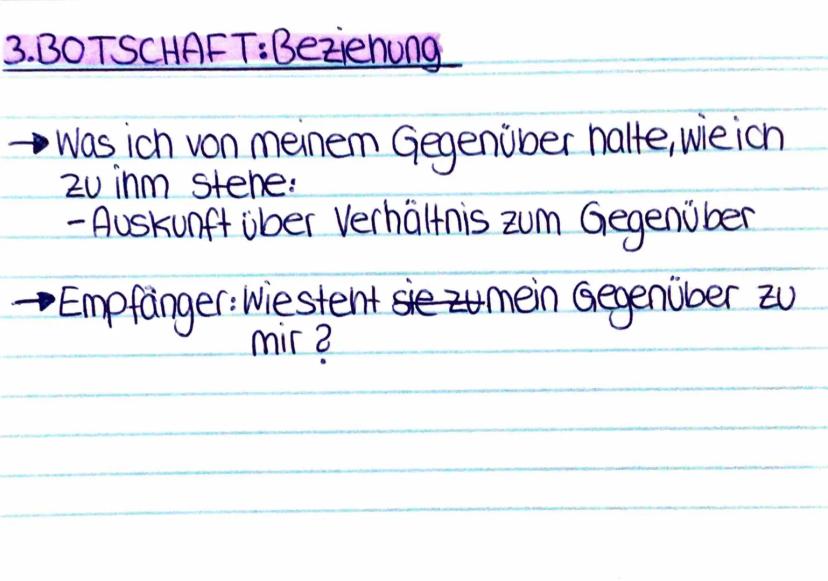 3. BOTSCHAFT: Beziehung
→ Was ich von meinem Gegenüber halte, wie ich
zu ihm stehe:
- Auskunft über Verhältnis zum Gegenüber
→ Empfänger: Wie steht ~~sie zu~~ mein Gegenüber zu
mir?